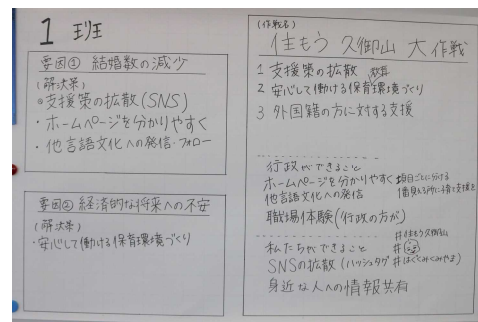 1 班
要因① 結婚数の減少
(解決策)
◎支援策の拡散(SNS)
・ホームページを分かりやすく
・他言語文化への発信・フォロー
要因② 経済的な将来への不安
(解決策)
・安心して働ける保育環境づくり
(作戦名)
住もう 久御山 大作戦
1 支援策の拡散
2 安心して働ける保育環境づくり
3 外国籍の方に対する支援
行政ができること
ホームページを分かりやすく 項目ごとに分ける
他言語文化への発信 1番見る所に 支援を
職場体験(行政の方が)
私たちができること #住もう久御山
SNSの拡散(ハッシュタグ #はぐくみくみやま)
身近な人への情報共有